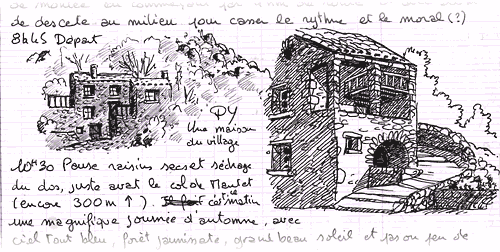 de descete au milieu pour casser le rythme et le moral (?)
8h45 Départ
PY
Une maison
du village
10H30 Pause raisins secs et séchage
du dos, juste avat le col de Mantet
(encore 300m ↑). ce matin
une magnifique journée d'automne, avec
ciel tout bleu, forêt jaunissate, grand beau soleil et pas un peu de